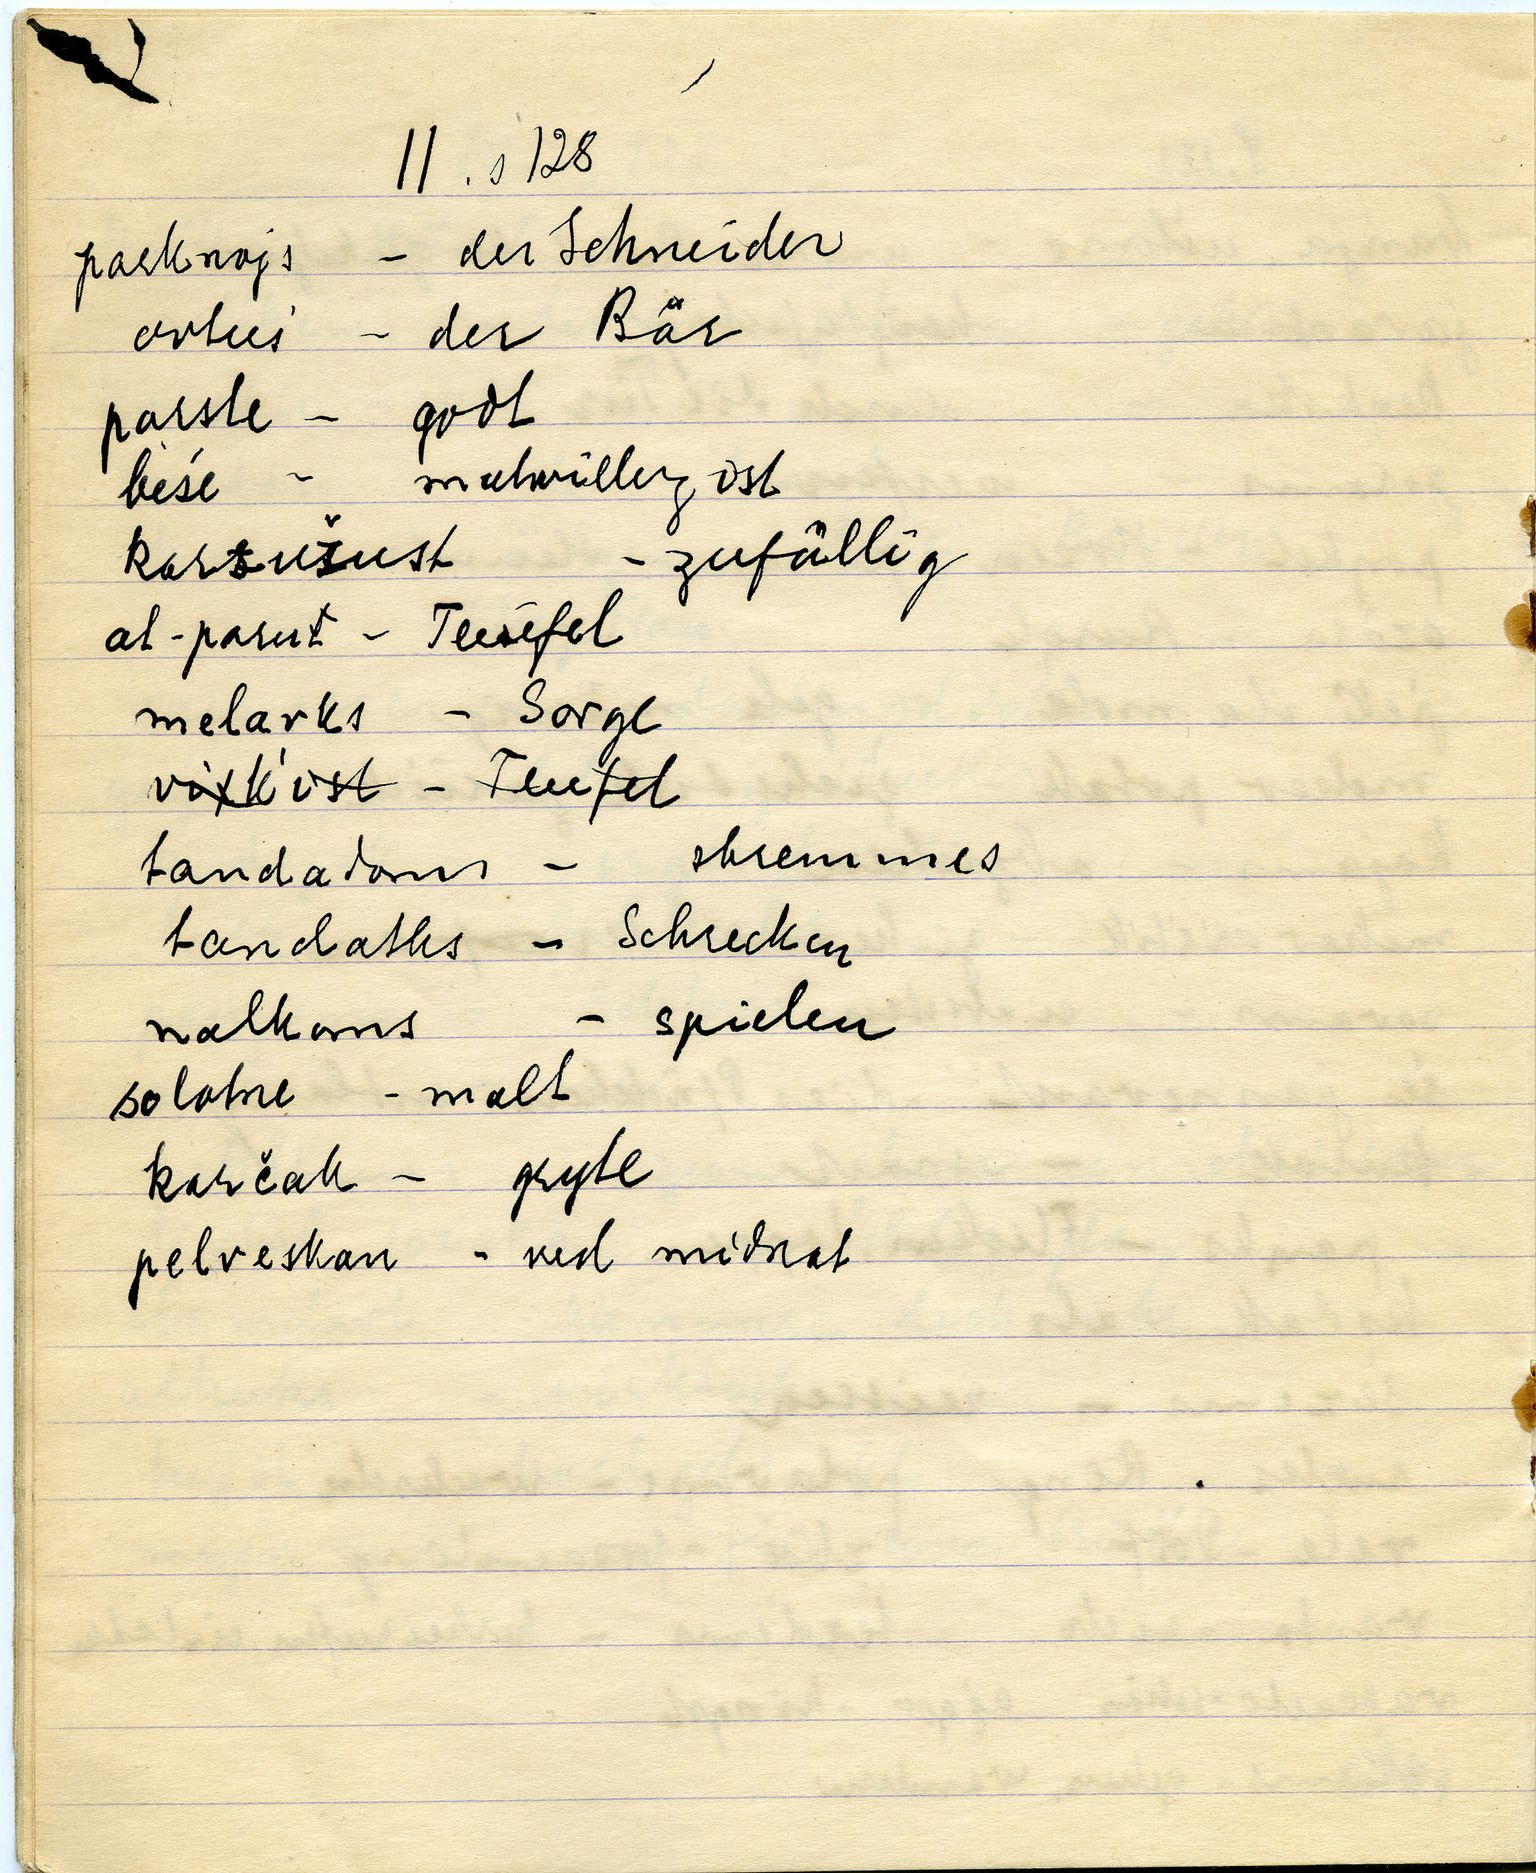 11. s 128
parknajs - der Schneider
ovtuś - der Bär
parste - godt
beśe - mutwillig øst
karsužust - zufällig
at-parut - Teufel
melavks - Sorge
vixḱist - Teufel
tandadoms - skremmes
tandatks - Schrecken
nalkoms - spielen
solotne - malt
korčak - gryte
pelveskan - ved midnat